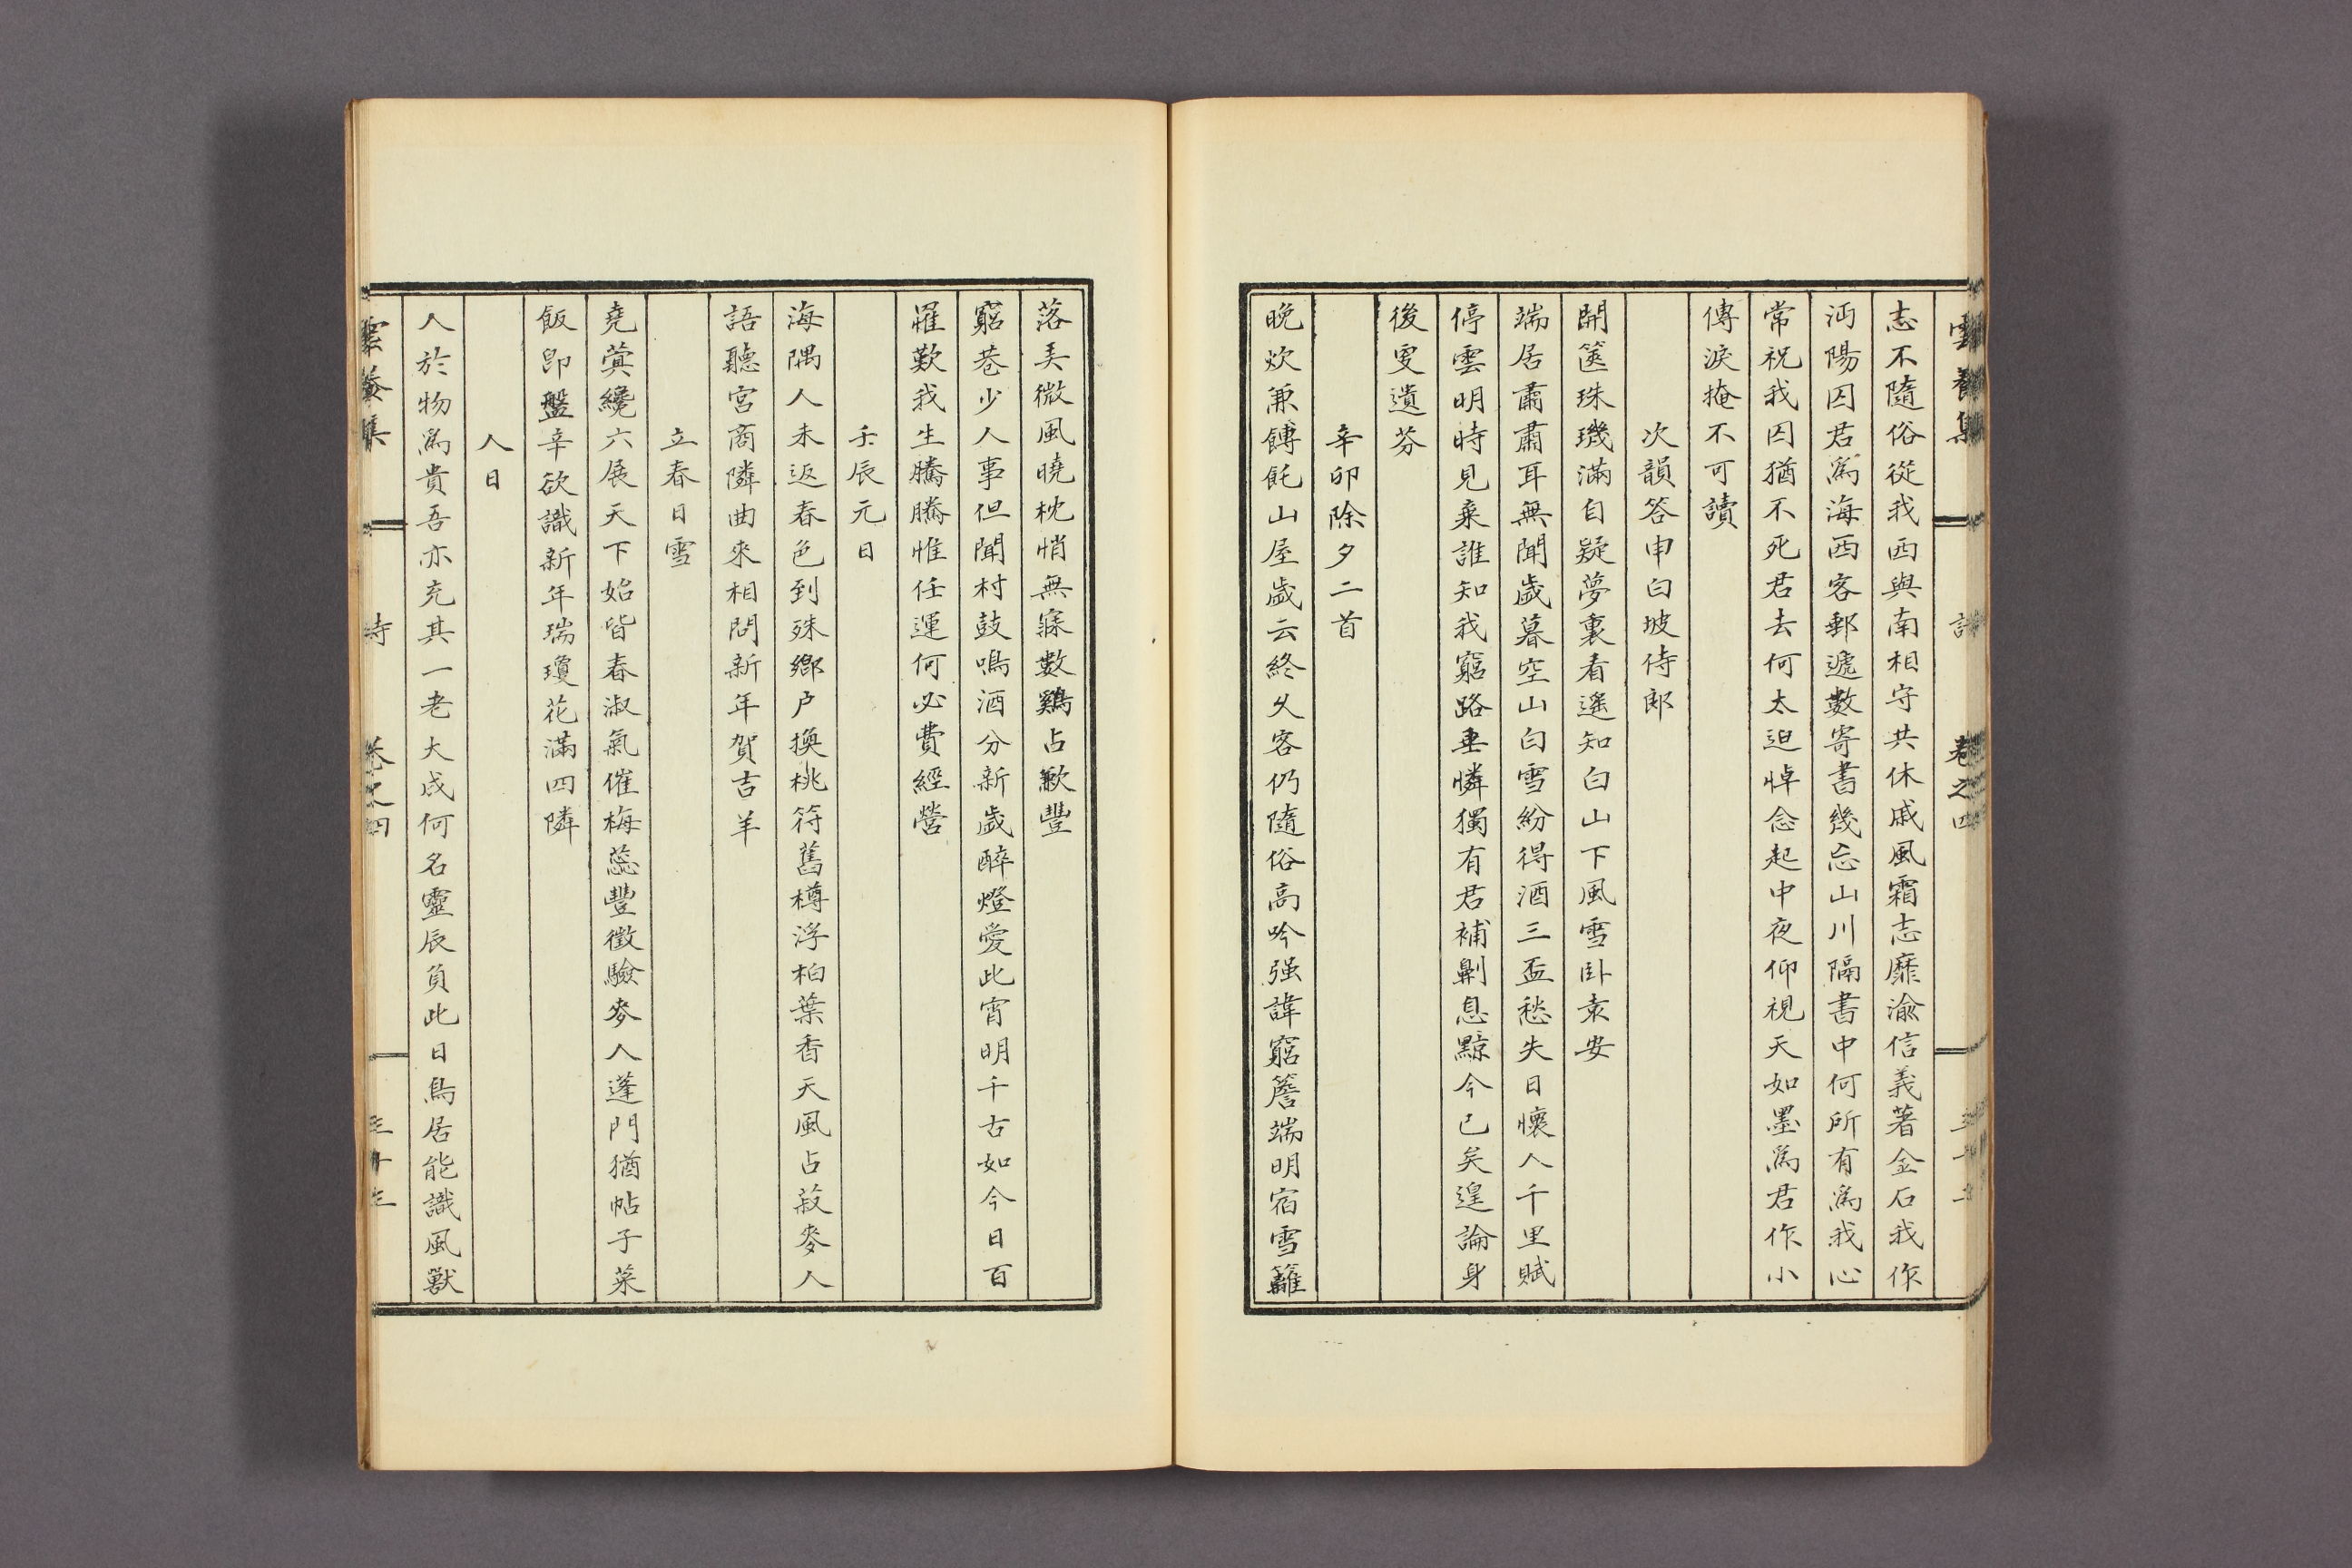 雲養集 詩 卷之四
志不隨俗從我西與南相守共休戚風霜志靡渝信義著金石我作
沔陽囚君爲海西客郵遞數寄書幾忘山川隔書中何所有爲我心
常祝我囚猶不死君去何太迫悼念起中夜仰視天如墨爲君作小
傳淚掩不可讀
次韻答申白坡侍郎
開篋珠璣滿自疑夢裏看遙知白山下風雪卧袁安
端居肅肅耳無聞歲暮空山白雪紛得酒三盃愁失日懷人千里賦
停雲明時見棄誰知我窮路垂憐獨有君補劓息黥今已矣遑論身
後叟遺芬
辛卯除夕二首
晩炊兼餺飥山屋歲云終久客仍隨俗高吟强諱窮簷端明宿雪籬
落美微風曉枕悄無寐數鷄占歉豐
窮巷少人事但聞村鼓鳴酒分新歲醉燈愛此宵明千古如今日百
罹歎我生騰騰惟任運何必費經營
壬辰元日
海隅人未返春色到殊鄉户換桃符舊樽浮柏葉香天風占菽麥人
語聽宮商隣曲來相問新年賀吉羊
立春日雪
堯蓂纔六展天下始皆春淑氣催梅蕊豐徵驗麥人蓬門猶帖子菜
飯卽盤辛欲識新年瑞瓊花滿四隣
人日
人於物爲貴吾亦充其一老大成何名靈辰負此日鳥居能識風獸
雲養集 詩 卷之四 三十三